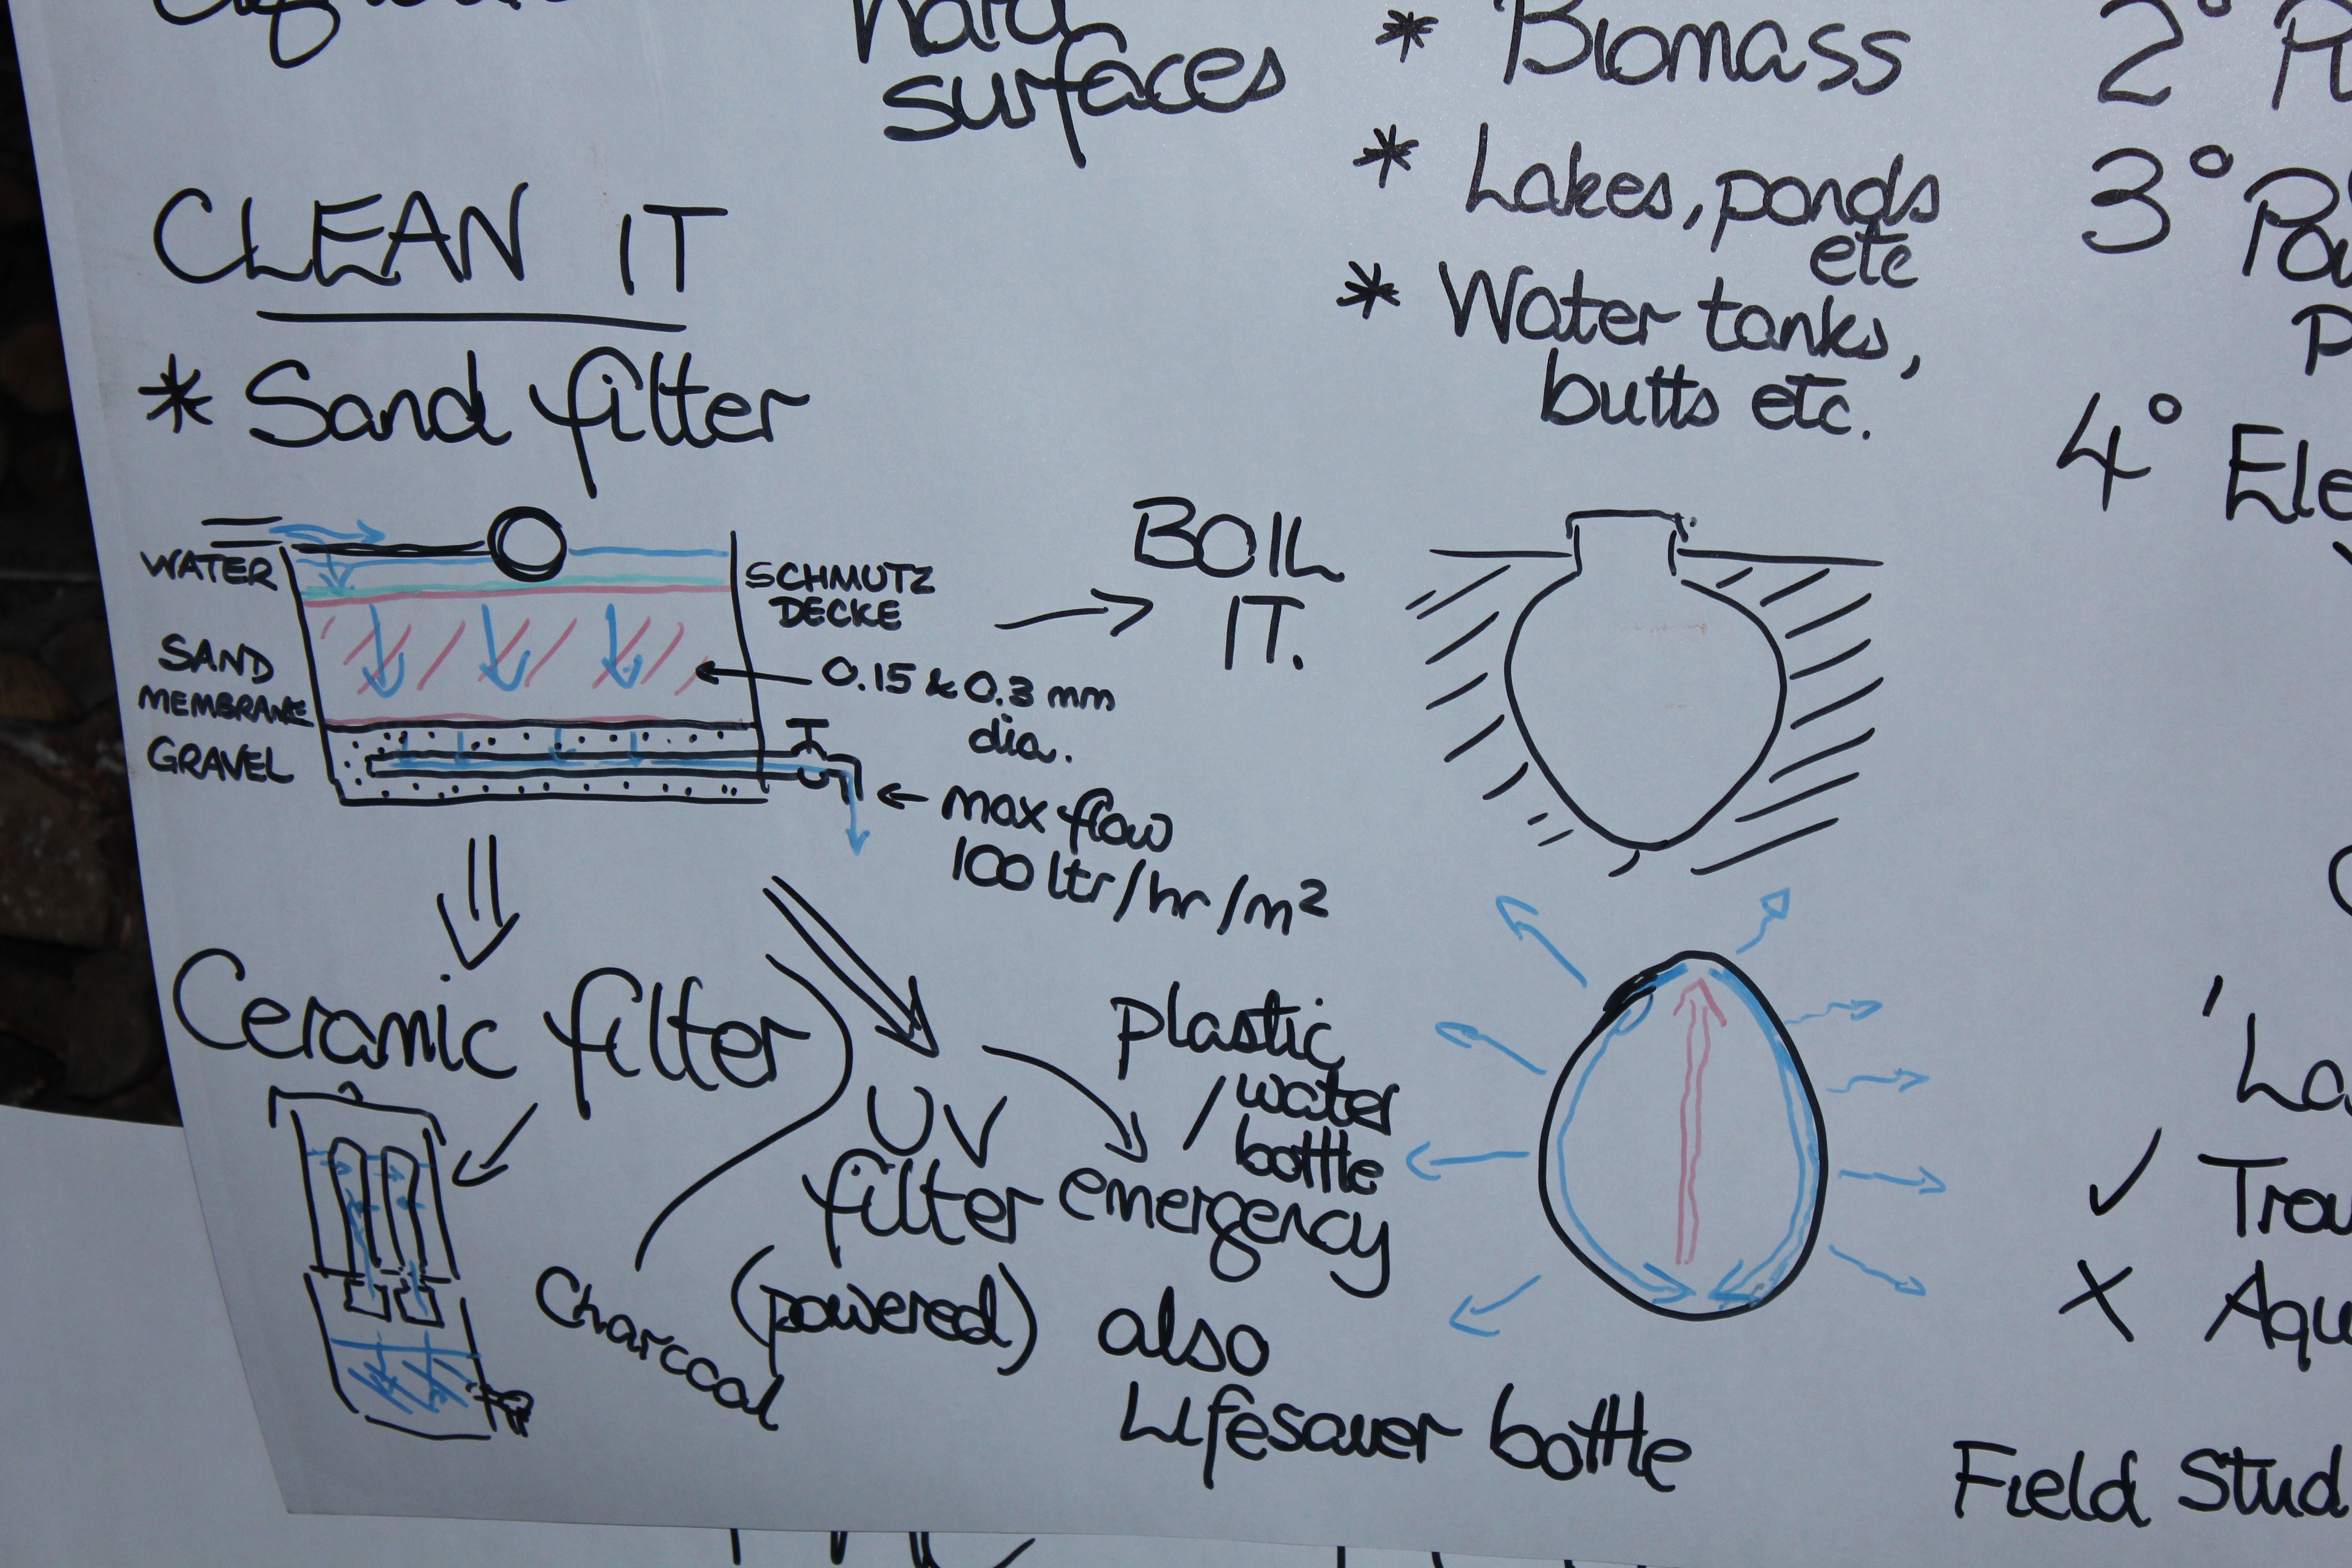 hard
surfaces
* Biomass
* Lakes, ponds
etc
* Water tanks,
butts etc.
2°
3°
4° Ele
CLEAN IT
* Sand filter
WATER
SAND
MEMBRANE
GRAVEL
SCHMUTZ
DECKE
0.15 & 0.3 mm
dia.
max flow
100 ltr/hr/m²
BOIL
IT.
Ceramic filter
Charcoal
UV
filter
(powered)
plastic
/ water
bottle
emergency
also
Lifesaver bottle
✓ Trou
X Aqu
Field Stud